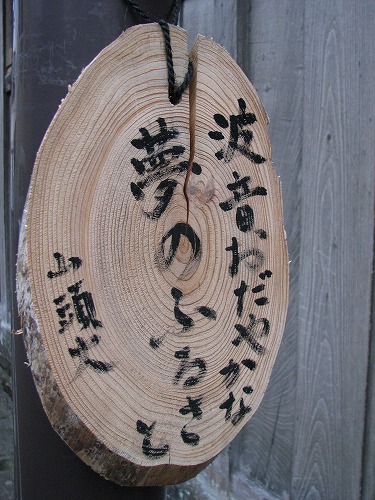 波音おだやかな
夢のふるさと
山頭火